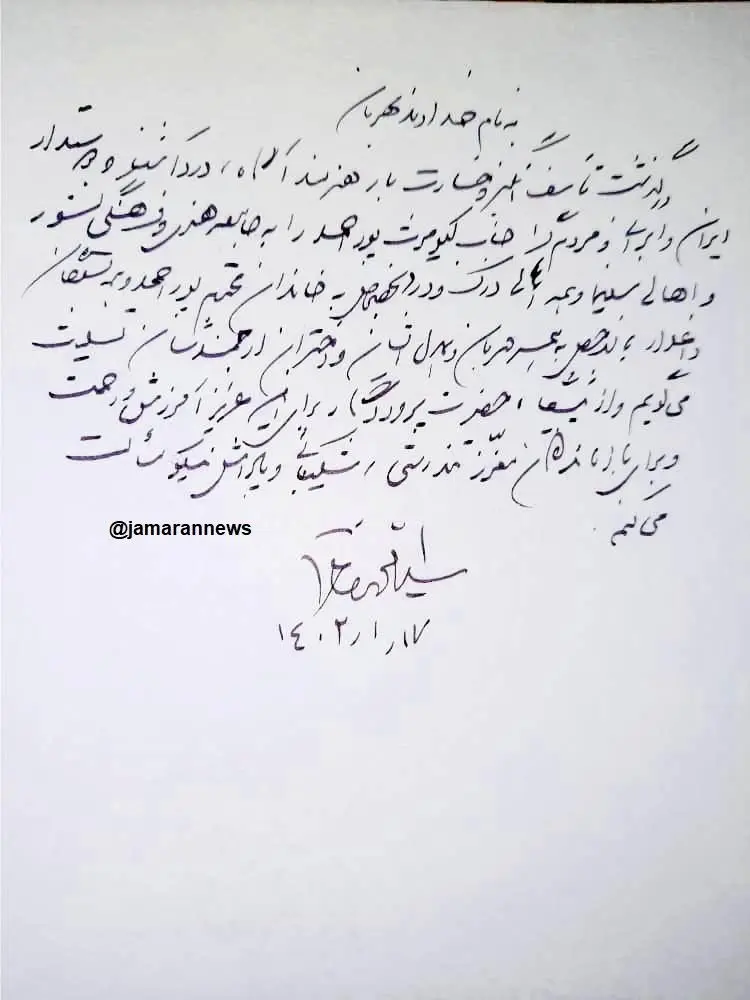 به نام خداوند مهربان
درگذشت تأسف انگیز و خسارت بار هنرمند آگاه، درد آشنا و دوستدار
ایران و ایرانی و مردمگرا جناب کیومرث پوراحمد را به جامعه هنری و فرهنگی کشور
و اهالی سینما و همه اهالی درک و درد بخصوص به خاندان محترم پوراحمد و همه بستگان
داغدار، بالاخص به همسر مهربان و دختران ارجمندشان تسلیت
می‌گویم و از پیشگاه حضرت پروردگار برای آن عزیز آمرزش و رحمت
و برای بازماندگان معزز تندرستی، شکیبائی و پاداش نیکو مسألت
می‌کنم.
@jamarannews
سید محمد خاتمی
۱۷ر۱ر۱۴۰۲